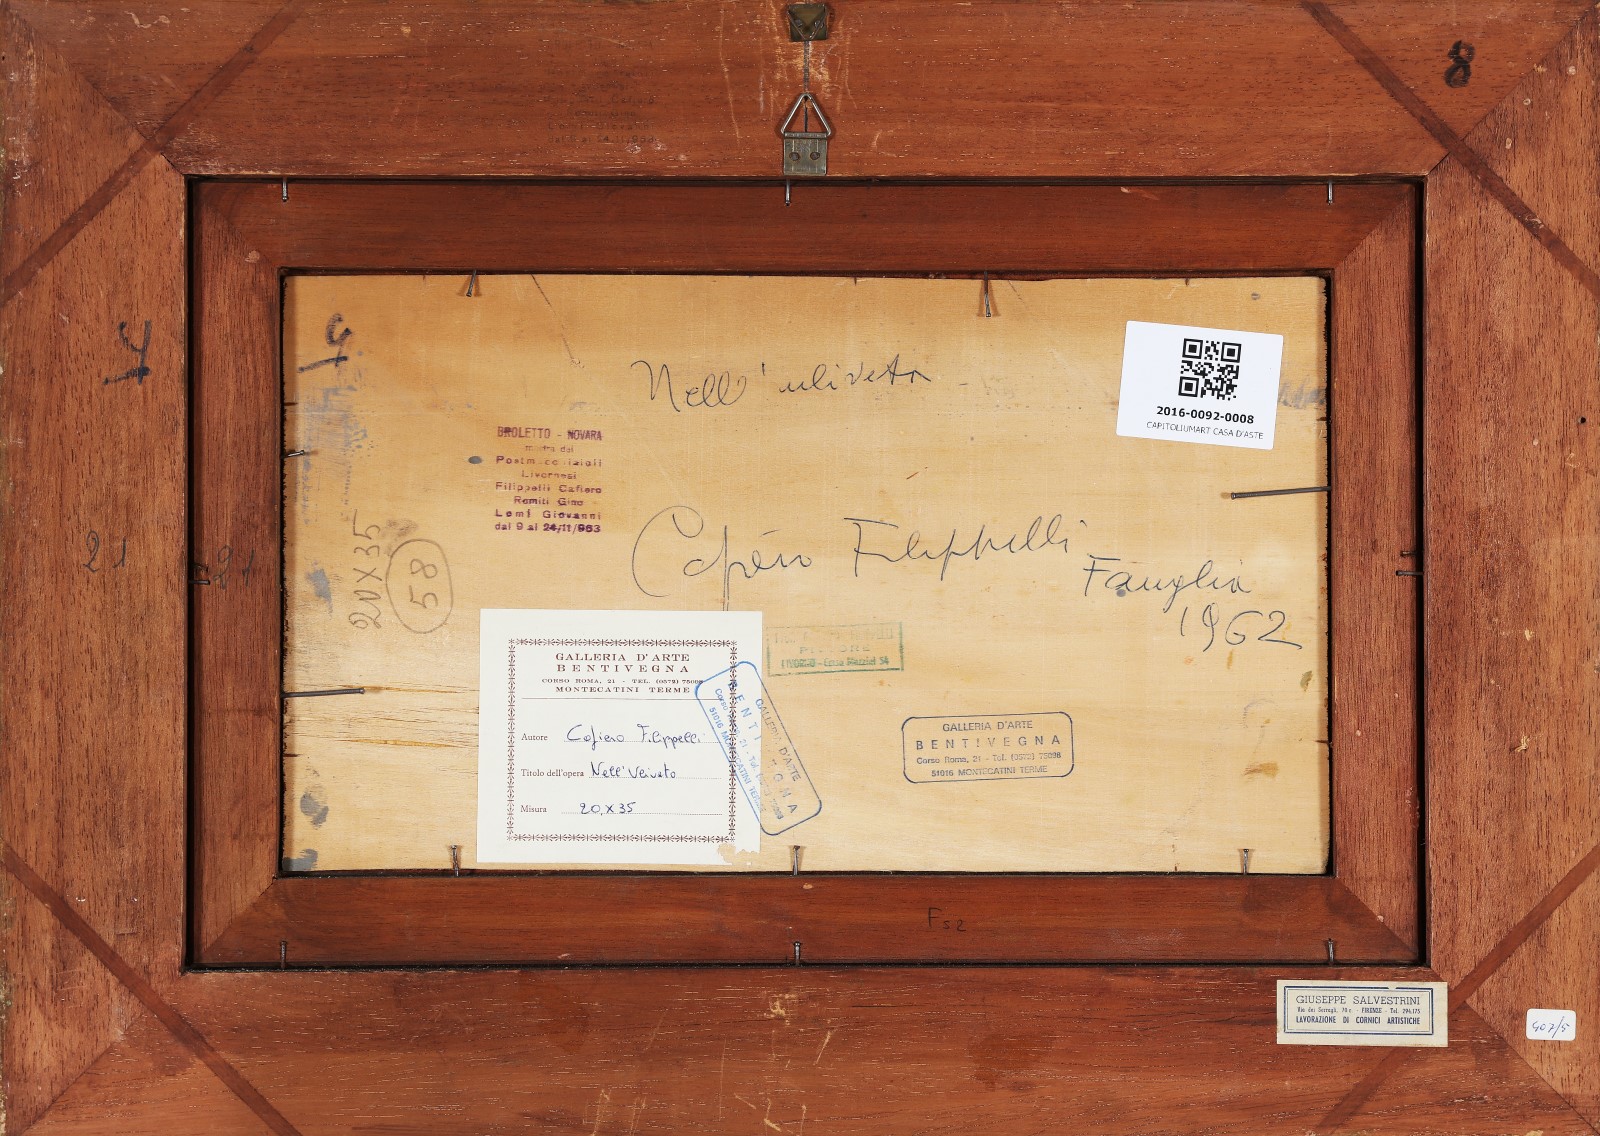 8
Y
Nell'uliveto
2016-0092-0008
CAPITOLIUMART CASA D'ASTE
BROLETTO - NOVARA
dei
Livornesi
Filippelli Cafiero
Romiti Gino
Lomi Giovanni
dal 9 al 24/11/963
Cafiero Filippelli
Fauglia
1962
21
21
20X35
58
LIVORNO - Corso Mazzini 54
GALLERIA D'ARTE
BENTIVEGNA
CORSO ROMA, 21 - TEL. (0572) 75098
MONTECATINI TERME
Autore Cafiero Filippelli
Titolo dell'opera Nell'Uliveto
Misura 20,X35
GALLERIA D'ARTE
BENTIVEGNA
Corso Roma, 21 - Tel.
51016 MONTECATINI TERME
GALLERIA D'ARTE
BENTIVEGNA
Corso Roma, 21 - Tel. (0572) 75098
51016 MONTECATINI TERME
Fs2
GIUSEPPE SALVESTRINI
Via dei Serragli, 70 r. - FIRENZE - Tel. 294.175
LAVORAZIONE DI CORNICI ARTISTICHE
407/5